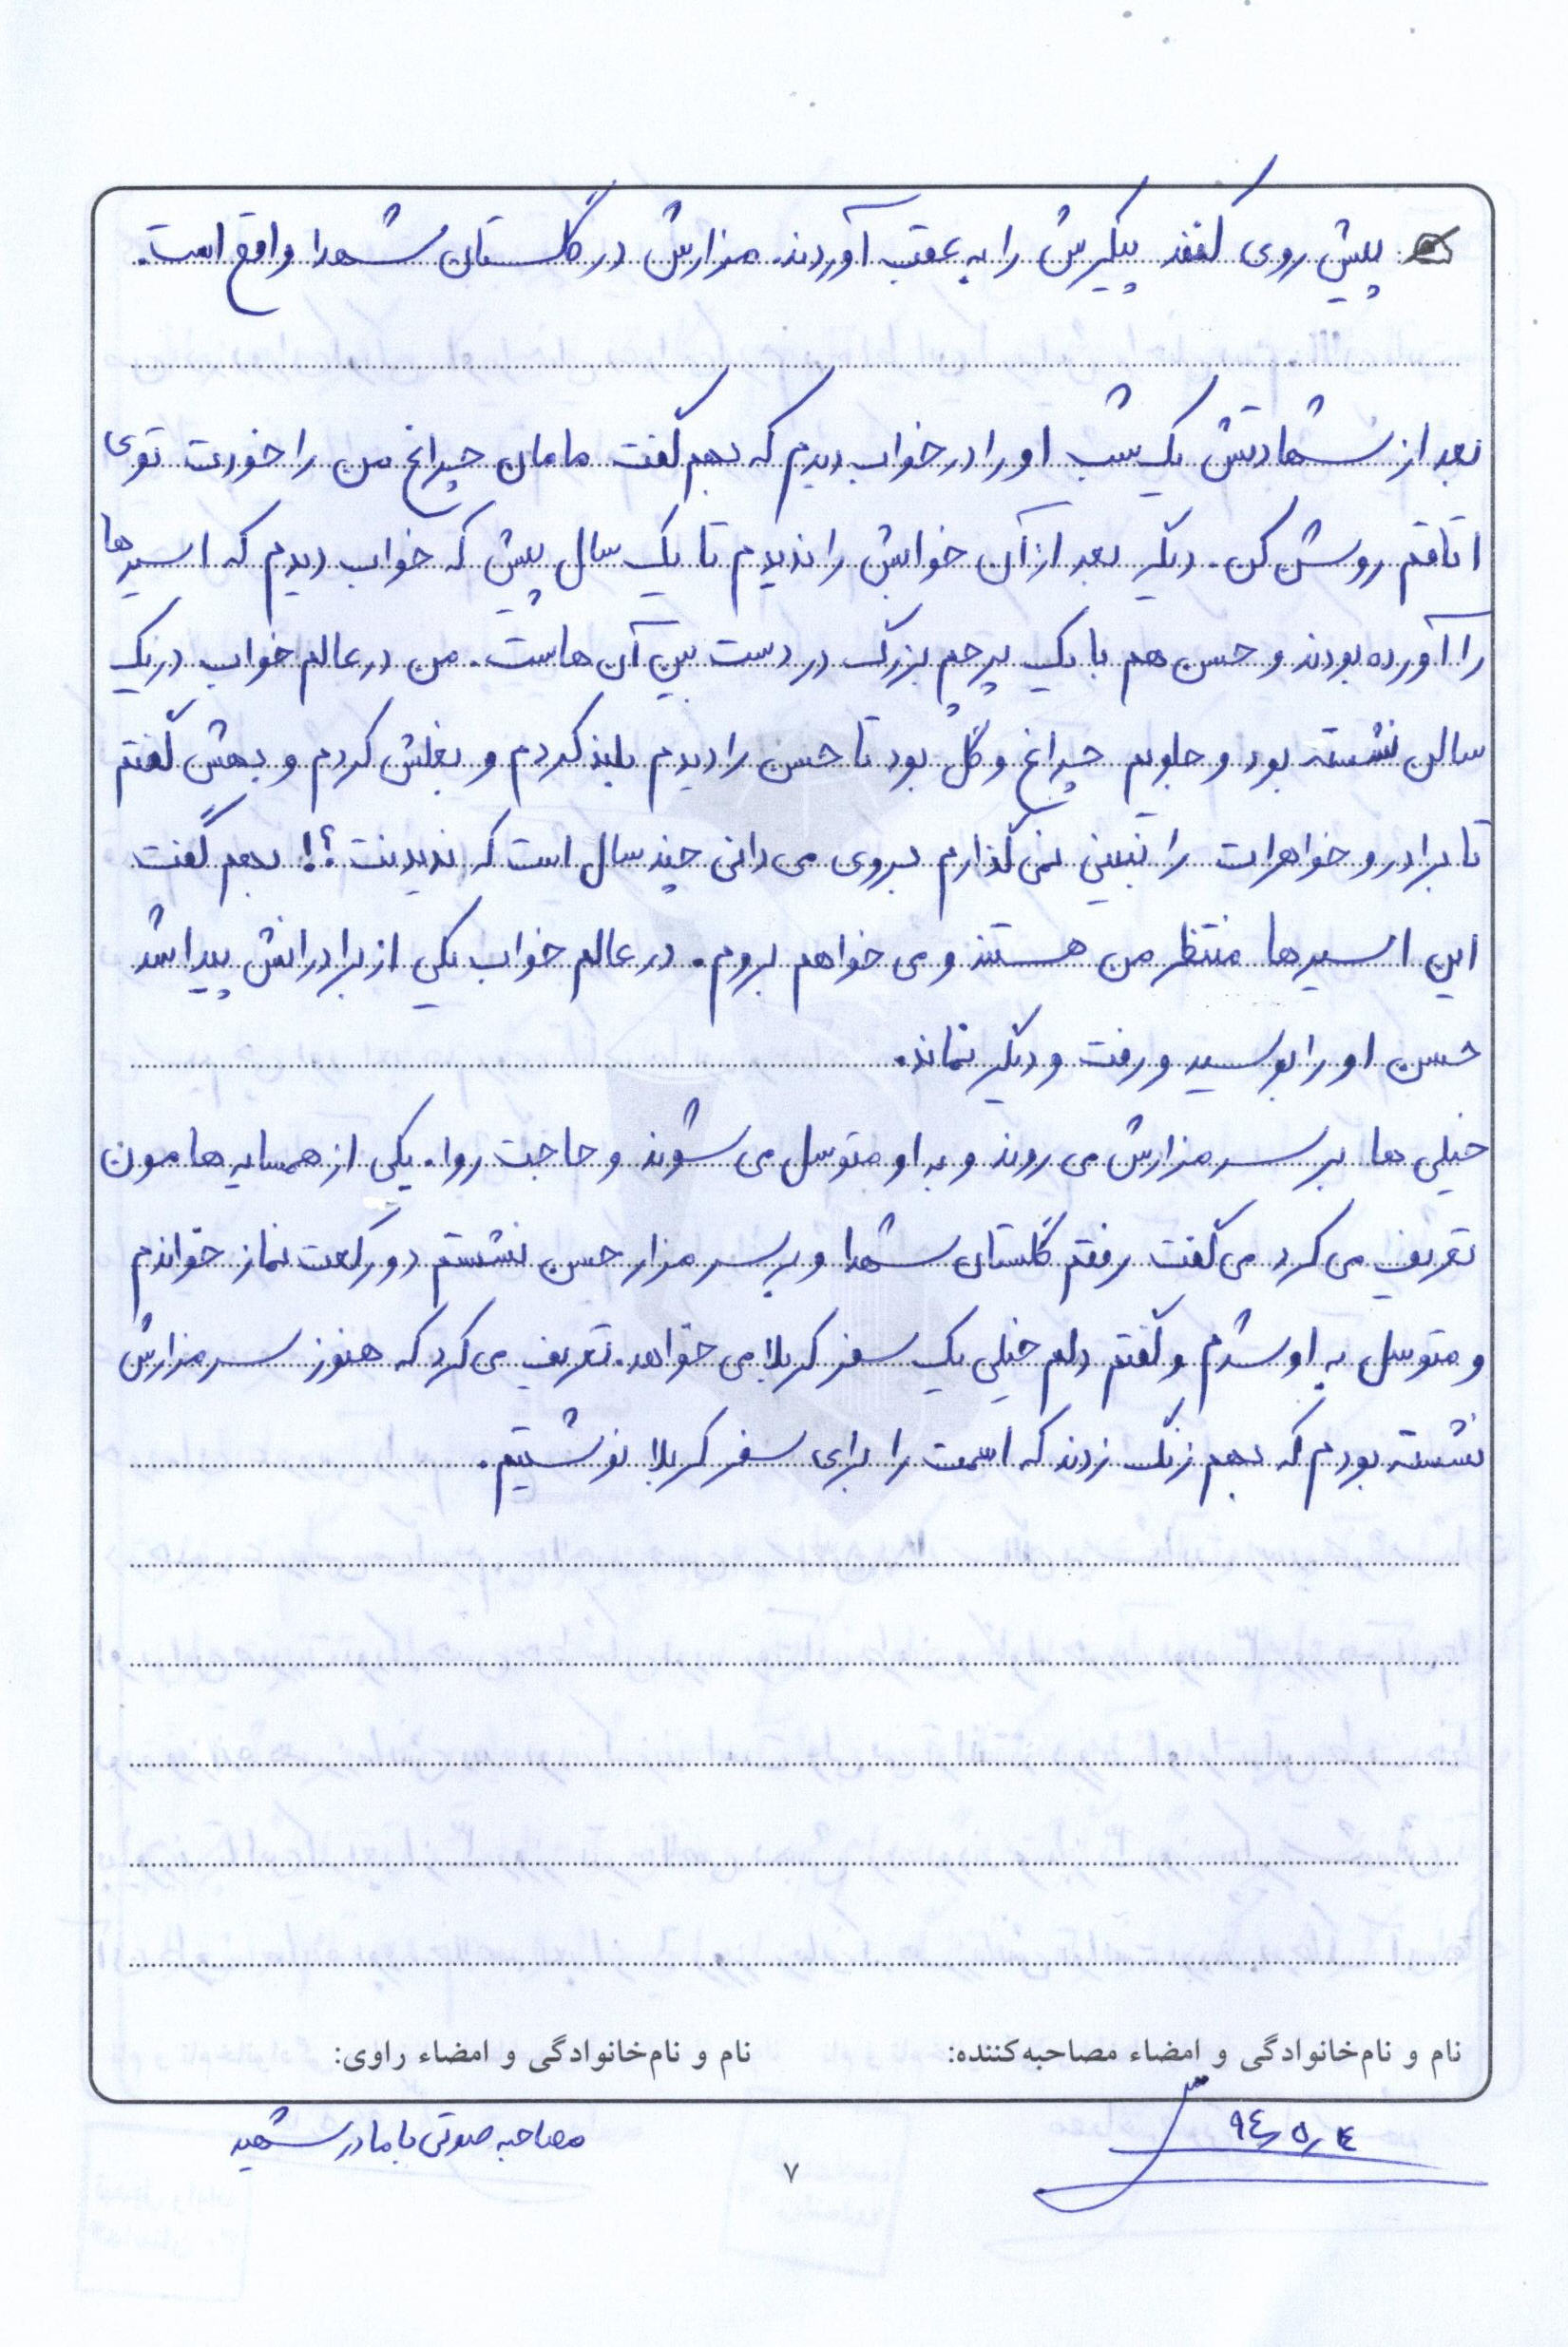 پیش روی کفند پیکرش را به عقب آوردند. مزارش در گلستان شهدا واقع است.
بعد از شهادتش یک شب او را در خواب دیدم که بهم گفت مامان چراغ من را خودت توی
اتاقم روشن کن. دیگر بعد از آن خوابش را ندیدم تا یک سال پیش که خواب دیدم که اسیرها
را آورده بودند و حسن هم با یک پرچم بزرگ در دست بین آن هاست. من در عالم خواب در یک
سالن نشسته بود و جلویم چراغ و گل بود تا حسن را دیدم بلند کردم و بغلش کردم و بهش گفتم
تا برادر و خواهرات را نبینی نمی گذارم بروی می دانی چند سال است که ندیدنت؟! بهم گفت
این اسیرها منتظر من هستند و می خواهم بروم. در عالم خواب یکی از برادرانش پیدا شد
حسن او را بوسید و رفت و دیگر نماند.
خیلی ها بر سر مزارش می روند و به او متوسل می شوند و حاجت روا. یکی از همسایه هامون
تعریف می کرد می گفت رفتم گلستان شهدا و بر سر مزار حسن نشستم دو رکعت نماز خواندم
و متوسل به او شدم و گفتم دلم خیلی یک سفر کربلا می خواهد. تعریف می کرد که هنوز سر مزارش
نشسته بودم که بهم زنگ زدند که اسمت را برای سفر کربلا نوشتیم.
نام و نام‌خانوادگی و امضاء مصاحبه‌کننده: نام و نام‌خانوادگی و امضاء راوی:
۹٤٫۵٫٤ مصاحبه صوتی با مادر شهید
۷